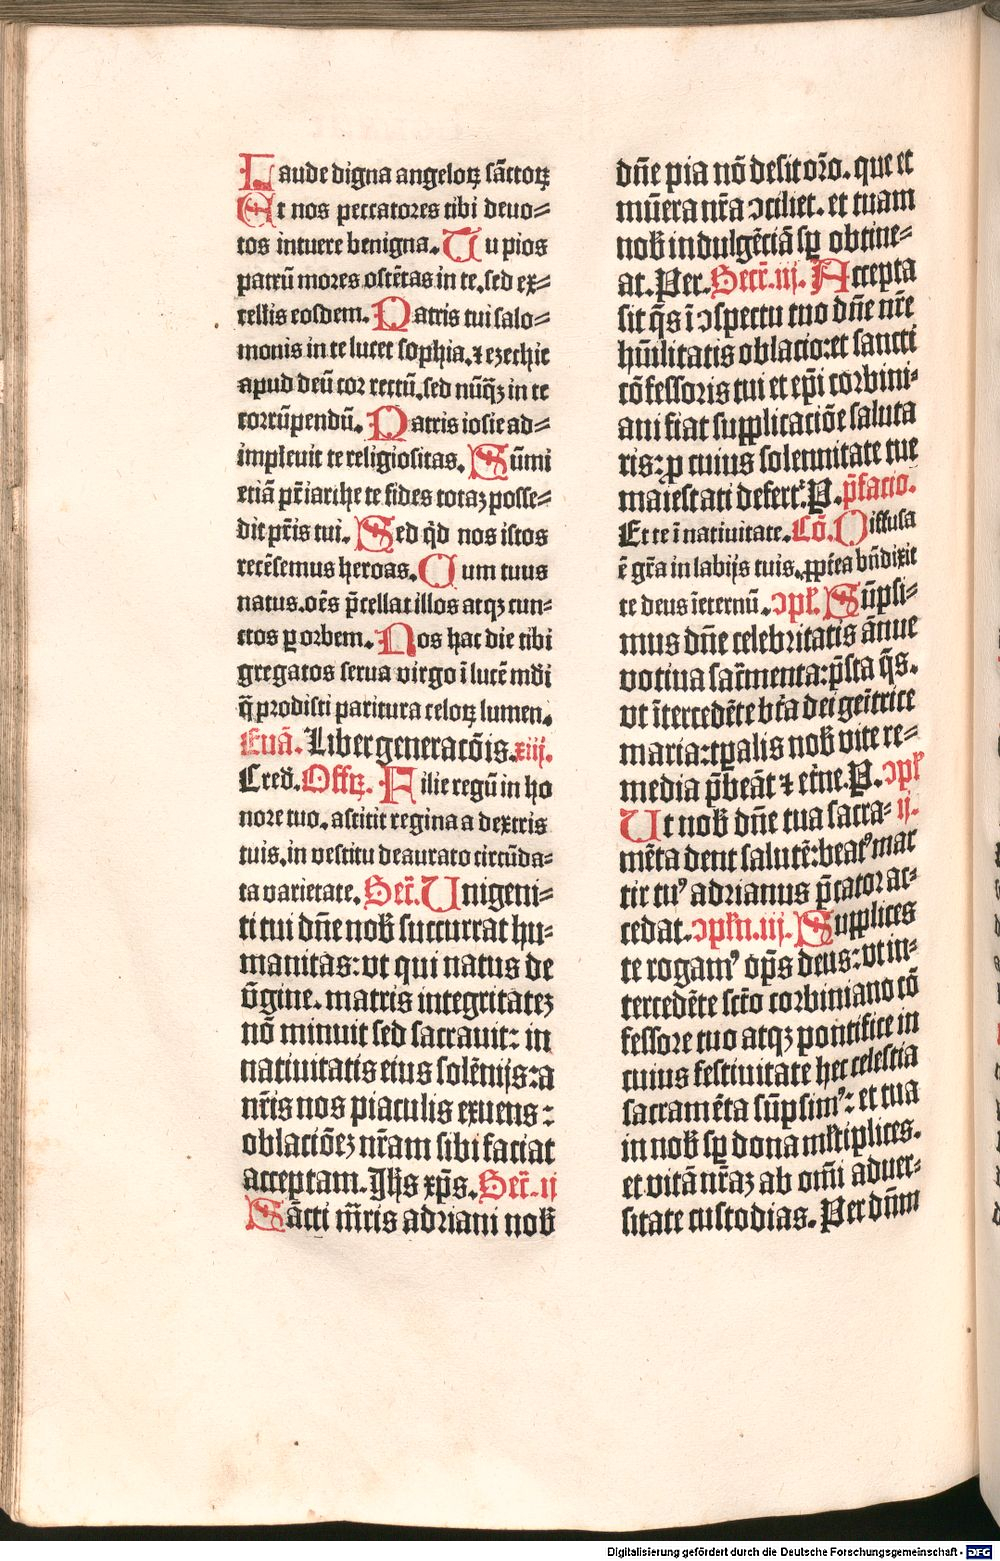 Laude digna angeloꝝ sãctoꝝ
Et nos peccatores tibi deuo⸗
tos intuere benigna. Tu pios
patrũ mores ostẽtas in te. sed ex⸗
cellis eosdem. Patris tui salo⸗
monis in te lucet sophia. ⁊ ezechie
apud deũ cor rectũ. sed nũqꝫ in te
corrũpendũ. Patris iosie ad⸗
impleuit te religiositas. Sũmi
etiã pr̃iarche te fides totaꝫ posse⸗
dit pr̃is tui. Sed qd̃ nos istos
recẽsemus heroas. Cum tuus
natus. oẽs p̃cellat illos atqꝫ cun⸗
ctos ꝑ orbem. Nos hac die tibi
gregatos serua virgo ĩ lucẽ mũdi
q̃ prodisti paritura celoꝝ lumen.
Euã. Liber generacõis. xiij.
Cred̃. Offꝝ. Filie regũ in ho
nore tuo. astitit regina a dextris
tuis. in vestitu deaurato circũda⸗
ta varietate. Secr̃. Unigeni⸗
ti tui dñe nob̃ succurrat hu⸗
manitas: vt qui natus de
v̾gine. matris integritateꝫ
nõ minuit sed sacrauit: in
natiuitatis eius solẽnijs: a
nr̃is nos piaculis exuens:
oblaciõeꝫ nr̃am sibi faciat
acceptam. Jhs xp̃s. Secr̃. ij
Sãcti m̃ris adriani nob̃
dñe pia nõ desit or̃o. que et
mũera nr̃a ↄciliet. et tuam
nob̃ indulgẽciã sp̱ obtine⸗
at. Per. Secr̃. iij. Accepta
sit q̃s ĩ ↄspectu tuo dñe nr̃e
hũilitatis oblacio: et sancti
cõfessoris tui et ep̃i corbini⸗
ani fiat supplicaciõe saluta
ris: ꝓ cuius solennitate tue
maiestati defert᷑. P. p̃facio.
Et te ĩ natiuitate. Cõ. Diffusa
ẽ gr̃a in labijs tuis. ꝓpt̾ea bñdixit
te deus ĩeternũ. ↄpl̃. Sũpsi⸗
mus dñe celebritatis ãnue
votiua sacr̃menta: p̃sta q̃s.
vt ĩtercedẽte bt̃a dei geĩtrice
maria: tp̃alis nob̃ vite re⸗
media p̃beãt ⁊ et̾ne. P. ↄpl̃
Ut nob̃ dñe tua sacra⸗ ij.
mẽta dent salutẽ: beatꝰ mar
tir tuꝰ adrianus p̃cator ac⸗
cedat. ↄpl̃n. iij. Supplices
te rogamꝰ op̃s deus: vt in⸗
tercedẽte sct̃o corbiniano cõ
fessore tuo atqꝫ pontifice in
cuius festiuitate hec celestia
sacramẽta sũpsimꝰ: et tua
in nob̃ sp̱ dona ml̃tiplices.
et vitã nr̃aꝫ ab om̃i aduer⸗
sitate custodias. Per dñm
Digitalisierung gefördert durch die Deutsche Forschungsgemeinschaft - DFG